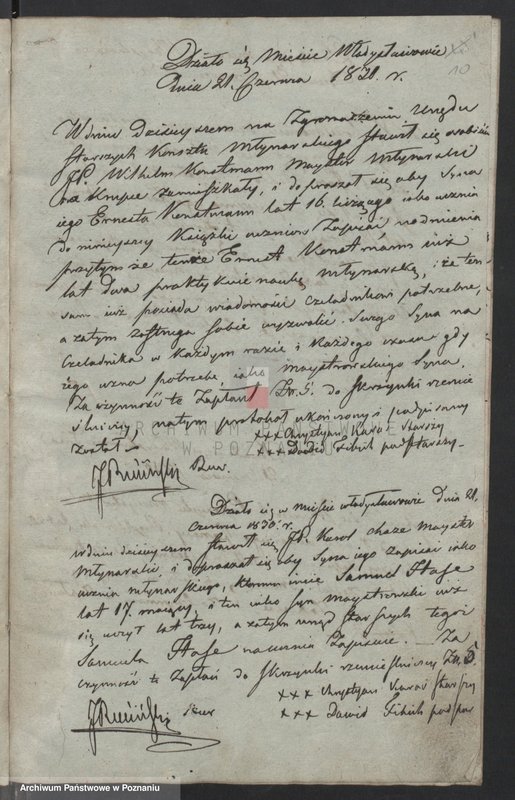 Działo się Mieście Władysławowie
Dnia 21. Czerwca 1830. r.
10
W dniu dzisieyszem na Zgromadzeniu Urzędu
Starszych Konsztu Młynarskiego stawił się osobiście
JP. Wilhelm Konstmann Mayster Młynarski
na Krupce zamieszkały, i doprasza się aby Syna
iego Ernesta Konstmann lat 16. liczącego iako ucznia
do ninieyszey Książki uczniow Zapisać, nadmienia
przytym że tenże Ernest Konstmann iuż
lat dwa praktykuie naukę młynarską, i że ten
sam iuż posiada wiadomości czeladnikowi potrzebne,
a zatym zostrzega sobie wyzwolić Swego Syna na
Czeladnika w każdym razie i każdego czasu gdy
tego uzna potrzebę iako maystrowskiego Syna.
Za czynność tę Zapłacił Zł. 6. do Skrzynki rzemie
ślniczey, na tym protokoł ukończony i podpisany
został.
xxx Chrystyan Karaś Starszy
xxx Dawid Fibich podstarszy.
Działo się w mieście Władysławowie dnia 21.
czerwca 1830. r.
w dniu dzisieyszem stawił się JP. Karol Haze mayster
Młynarski i doprasza się aby Syna iego Zapisać iako
ucznia młynarskiego, ktoremu imie Samuel Haze
lat 17. maiący, a ten iako Syn maystrowski iuż
się uczył lat trzy, a zatym urząd starszych tegoż
Samuela Haze na ucznia Zapisuie. Za
czynność tę Zapłacił do Skrzynki rzemieślniczey Zł. 6.
xxx Chrystyan Karaś Starszy
xxx Dawid Fibich podstar
ARCHIWUM PAŃSTWOWE
W POZNANIU
Archiwum Państwowe w Poznaniu